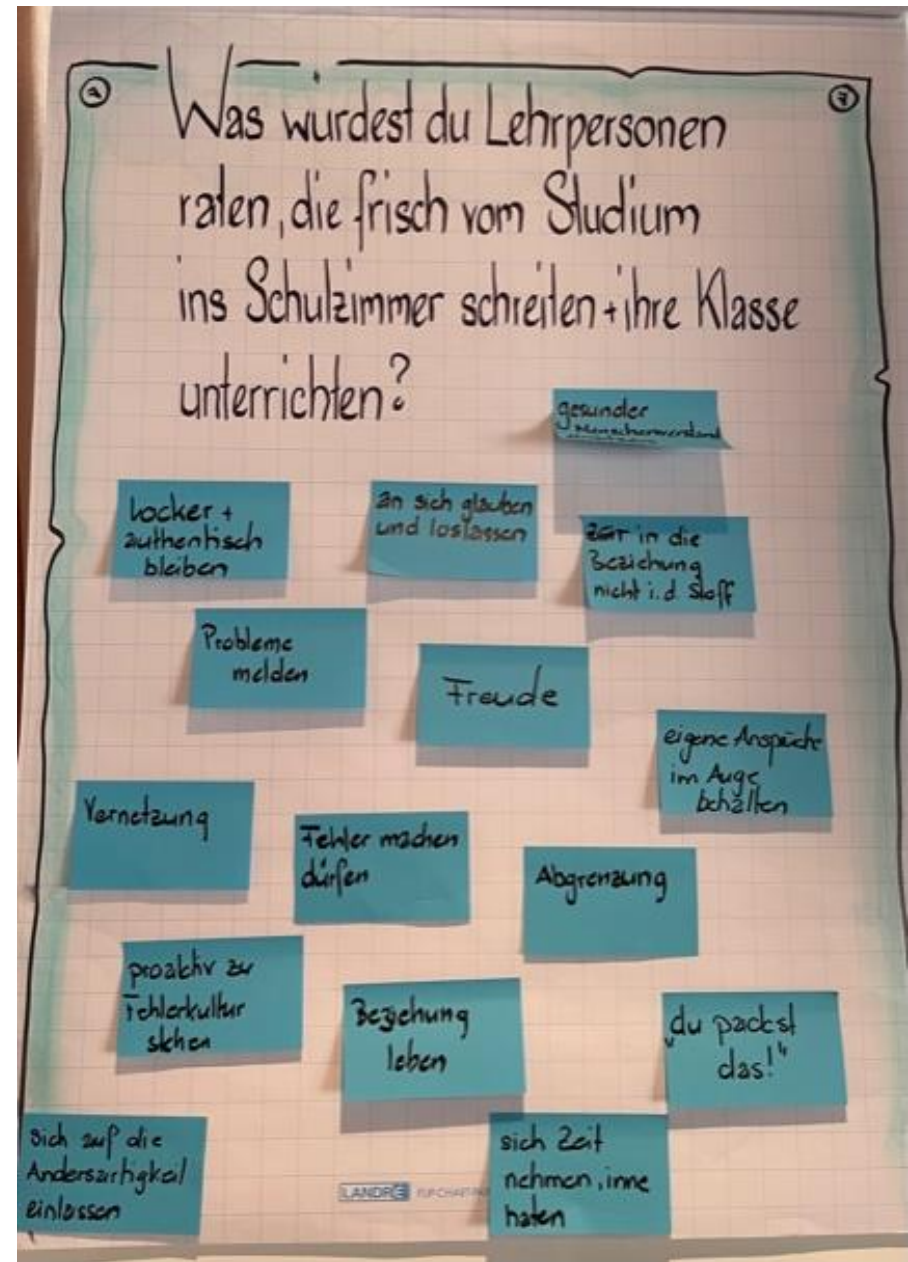 Was würdest du Lehrpersonen
raten, die frisch vom Studium
ins Schulzimmer schreiten + ihre Klasse
unterrichten?
gesunder
Menschenverstand
locker +
authentisch
bleiben
an sich glauben
und loslassen
Zeit in die
Beziehung
nicht i.d. Stoff
Probleme
melden
Freude
eigene Ansprüche
im Auge
behalten
Vernetzung
Fehler machen
dürfen
Abgrenzung
proaktiv zu
Fehlerkultur
stehen
Beziehung
leben
„du packst
das!“
sich auf die
Andersartigkeit
einlassen
sich Zeit
nehmen, inne
haten
LANDRÉ